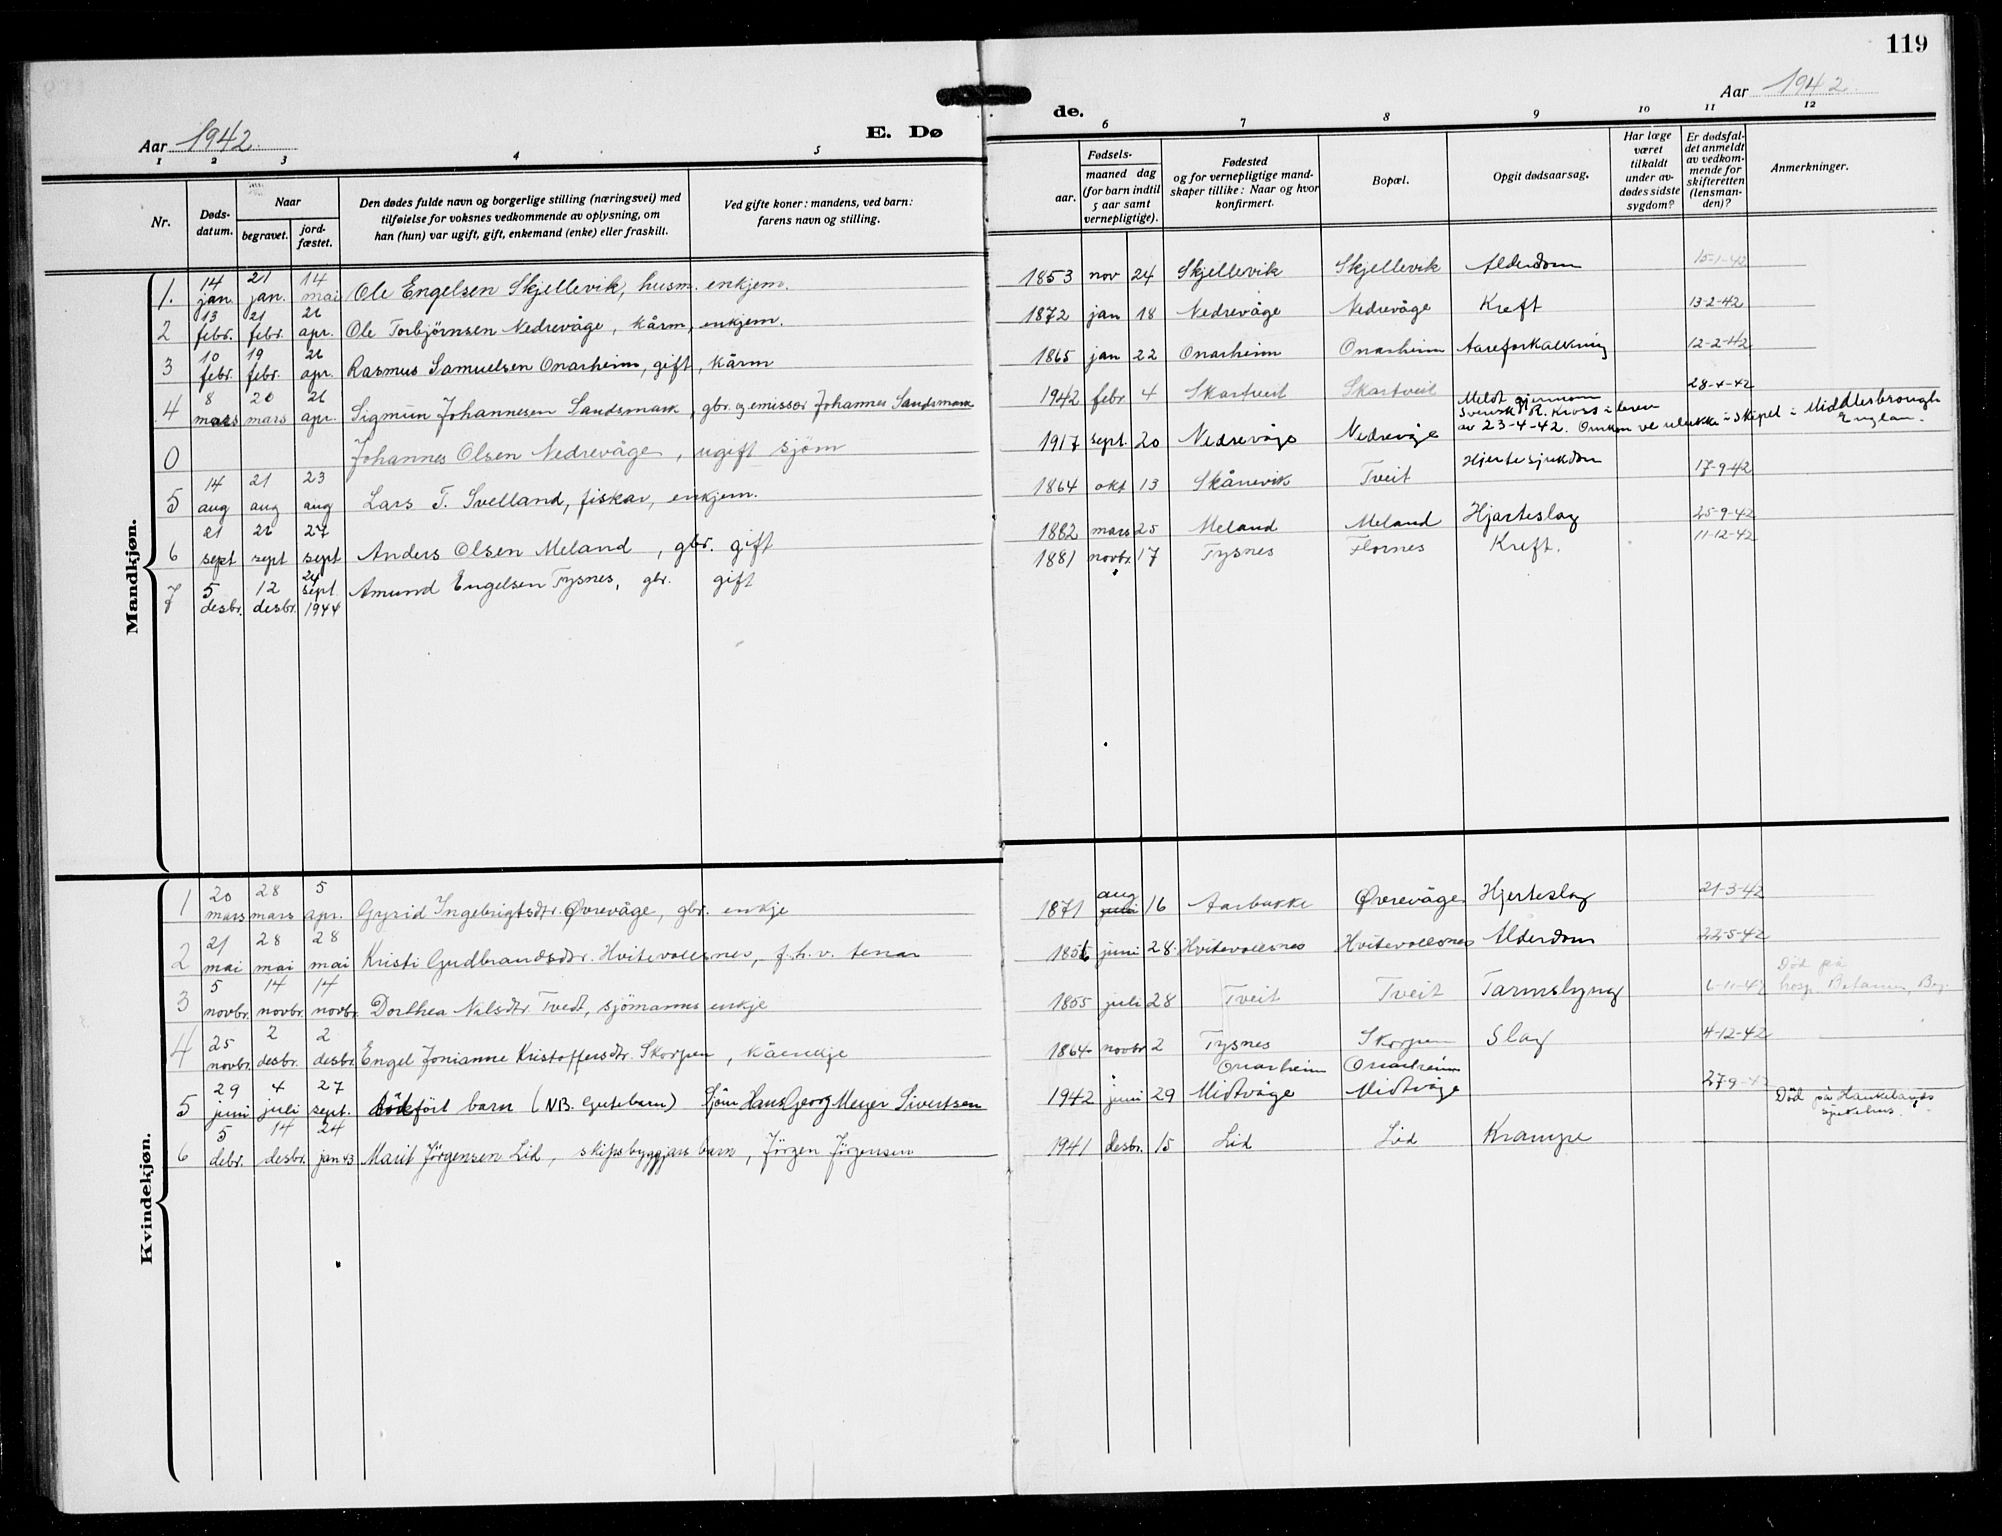 119
Aar 1942.
E. Dø de.
Aar 1942.
1 2 3 4 5 6 7 8 9 10 11 12
Nr.
Døds-
datum.
Naar
begravet.
jord-
fæstet.
Den dødes fulde navn og borgerlige stilling (næringsvei) med
tilføielse for voksnes vedkommende av oplysning, om
han (hun) var ugift, gift, enkemand (enke) eller fraskilt.
Ved gifte koner: mandens, ved barn:
farens navn og stilling.
Fødsels-
aar.
maaned dag
(for barn indtil
5 aar samt
vernepligtige).
Fødested
og for vernepligtige mand-
skaper tillike: Naar og hvor
konfirmert.
Bopæl.
Opgit dødsaarsag.
Har læge
været
tilkaldt
under av-
dødes sidste
sygdom?
Er dødsfal-
det anmeldt
av vedkom-
mende for
skifteretten
(lensman-
den)?
Anmerkninger.
Mandkjøn.
1. 14 jan. 21 jan. 14 mai Ole Engelsen Skjellevik, husm. enkjem. 1853 nov 24 Skjellevik Skjellevik Alderdom 15-1-42
2 13 febr. 21 febr. 26 apr. Ole Torbjørnsen Nedrevåge, kårm, enkjem. 1872 jan 18 Nedrevåge Nedrevåge Kreft 13-2-42
3 10 febr. 19 febr. 26 apr. Rasmus Samuelsen Onarheim, gift, kårm 1865 jan 22 Onarheim Onarheim Aareforkalkning 12-2-42
4 8 mars 20 mars 26 apr. Sigmun Johannesen Sandsmark, gbr. og emissær Johannes Sandsmark 1942 febr 4 Skartveit Skartveit 28-4-42
0 Johannes Olsen Nedrevåge, ugift sjöm 1917 sept. 20 Nedrevåge Nedrevåge Meldt gjennom
Svensk R. Kross i brev
av 23-4-42. Omkom ve ulukke i skipet i Middlesbrough
Englan.
5 14 aug 21 aug 23 aug Lars T. Svelland, fiskar, enkjem. 1864 okt 13 Skånevik Tveit Hjertesjukdom 17-9-42
6 21 sept 26 sept 27 sept Anders Olsen Meland, gbr. gift 1882 mars 25 Meland Meland Hjarteslag 25-9-42
7 5 desbr. 12 desbr. 24 sept. 1944 Amund Engelsen Tysnes, gbr. gift 1881 novbr. 17 Tysnes Flornes Kreft. 11-12-42
Kvindekjøn.
1 20 mars 28 mars 5 apr. Gyrid Ingebrigtsdtr. Øvrevåge, gbr. enkje 1871 aug 16 Aarbakke Øvrevåge Hjerteslag 21-3-42
2 21 mai 28 mai 28 mai Kristi Gudbrandsdtr. Hvitevollsnes, f.h.v. tenar juni 28 Hvitevollsnes Hvitevollsnes Alderdom 22-5-42
3 5 novbr. 14 novbr. 14 novbr. Dorthea Nilsdtr Tvedt, sjömanns enkje 1855 juli 28 Tveit Tveit Tarmslyng 6-11-42 Död på
hosp. Betanien, Bg.
4 25 novbr. 2 desbr. 2 desbr. Engel Jonianne Kristoffersdtr. Skorpen, kåenkje 1864 novbr 2 Tysnes Skorpen Slag 4-12-42
5 29 juni 4 juli 27 sept. födt barn (NB. Gutebarn) Sjöm Hans Georg Meyer Sivertsen 1942 juni 29 Onarheim Midtvåge Onarheim Midtvåge 27-9-42
6 5 debr. 14 desbr. 24 jan 43 Marit Jörgensen Lid, skipsbyggjars barn, Jörgen Jörgensen 1941 desbr. 15 Lid Lid Krampe Död på Haukelands
sjukehus.